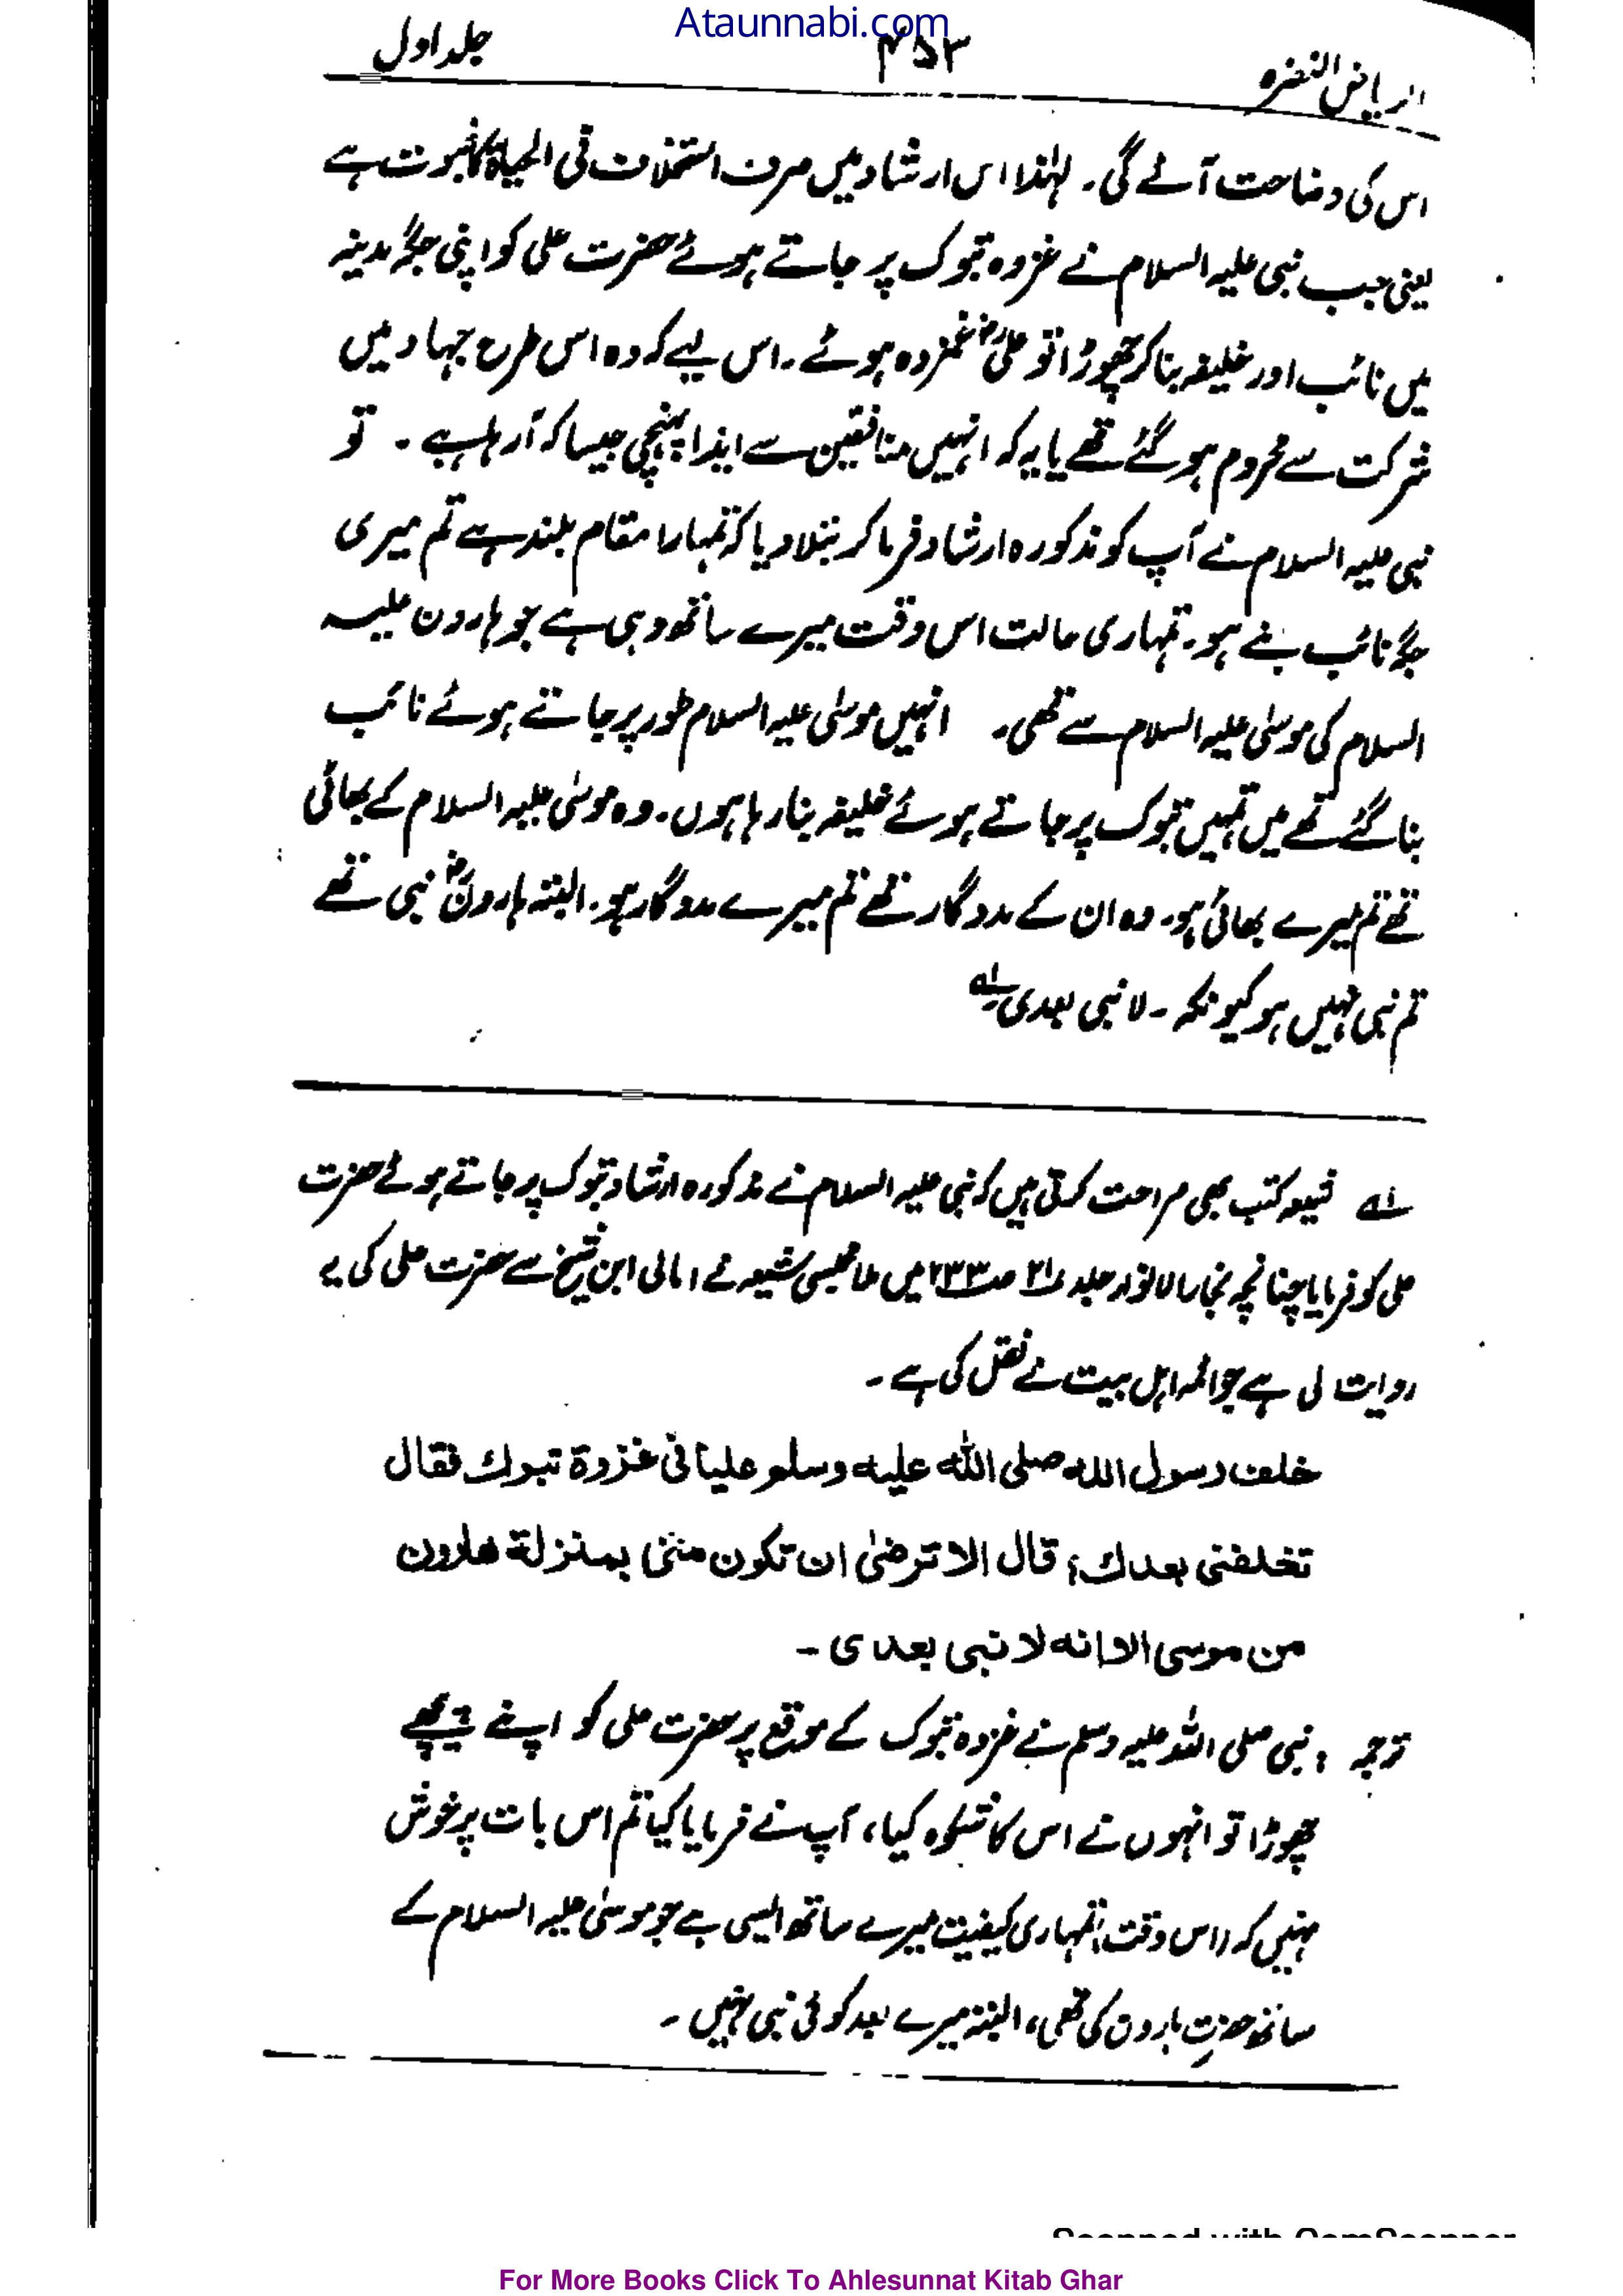 Ataunnabi.com
الریاض النضرہ ۴۵۳ جلد اول
اس کی وضاحت آئے گی۔ لہٰذا اس ارشاد میں صرف استخلاف فی الحیاۃ کا ثبوت ہے
یعنی جب نبی علیہ السلام نے غزوہ تبوک پر جاتے ہوئے حضرت علی کو اپنی جگہ مدینہ
میں نائب اور خلیفہ بنا کر چھوڑا تو علیؓ غمزدہ ہوئے۔ اس لیے کہ وہ اس طرح جہاد میں
شرکت سے محروم ہو گئے تھے یا یہ کہ انہیں منافقین سے ایذا پہنچی جیسا کہ آ رہا ہے۔ تو
نبی علیہ السلام نے آپ کو مذکورہ ارشاد فرما کر بتلا دیا کہ تمہارا مقام بلند ہے تم میری
جگہ نائب بنے ہو۔ تمہاری حالت اس وقت میرے ساتھ وہی ہے جو ہارون علیہ
السلام کی موسیٰ علیہ السلام سے تھی۔ انہیں موسیٰ علیہ السلام طور پر جاتے ہوئے نائب
بنا گئے تھے میں تمہیں تبوک پر جاتے ہوئے خلیفہ بنا رہا ہوں۔ وہ موسیٰ علیہ السلام کے بھائی
تھے تم میرے بھائی ہو۔ وہ ان کے مددگار تھے تم میرے مددگار ہو۔ البتہ ہارونؑ نبی تھے
تم نبی نہیں ہو کیونکہ ۔ لا نبی بعدی لہ
لہ شیعہ کتب بھی صراحت کرتی ہیں کہ نبی علیہ السلام نے مذکورہ ارشاد تبوک پر جاتے ہوئے حضرت
علی کو فرمایا چنانچہ بحارالانوار جلد ۲۱ صـ۲۳۳ میں ملا مجلسی شیعہ نے امالی ابن شیخ سے حضرت علی کی یہ
روایت لی ہے جو ائمہ اہل بیت نے نقل کی ہے۔
خلف رسول الله صلى الله عليه وسلم عليا فى غزوة تبوك فقال
تخلفنى بعدك؟ قال الا ترضىٰ ان تكون منى بمنزلة هارون
من موسى الا انه لا نبى بعدى ۔
ترجمہ : نبی صلی اللہ علیہ وسلم نے غزوہ تبوک کے موقع پر حضرت علی کو اپنے پیچھے
چھوڑا تو انہوں نے اس کا شکوہ کیا، آپ نے فرمایا کیا تم اس بات پر خوش
نہیں کہ (اس وقت) تمہاری کیفیت میرے ساتھ ایسی ہے جو موسیٰ علیہ السلام کے
ساتھ حضرت ہارون کی تھی، البتہ میرے بعد کوئی نبی نہیں۔
Scanned with CamScanner
For More Books Click To Ahlesunnat Kitab Ghar